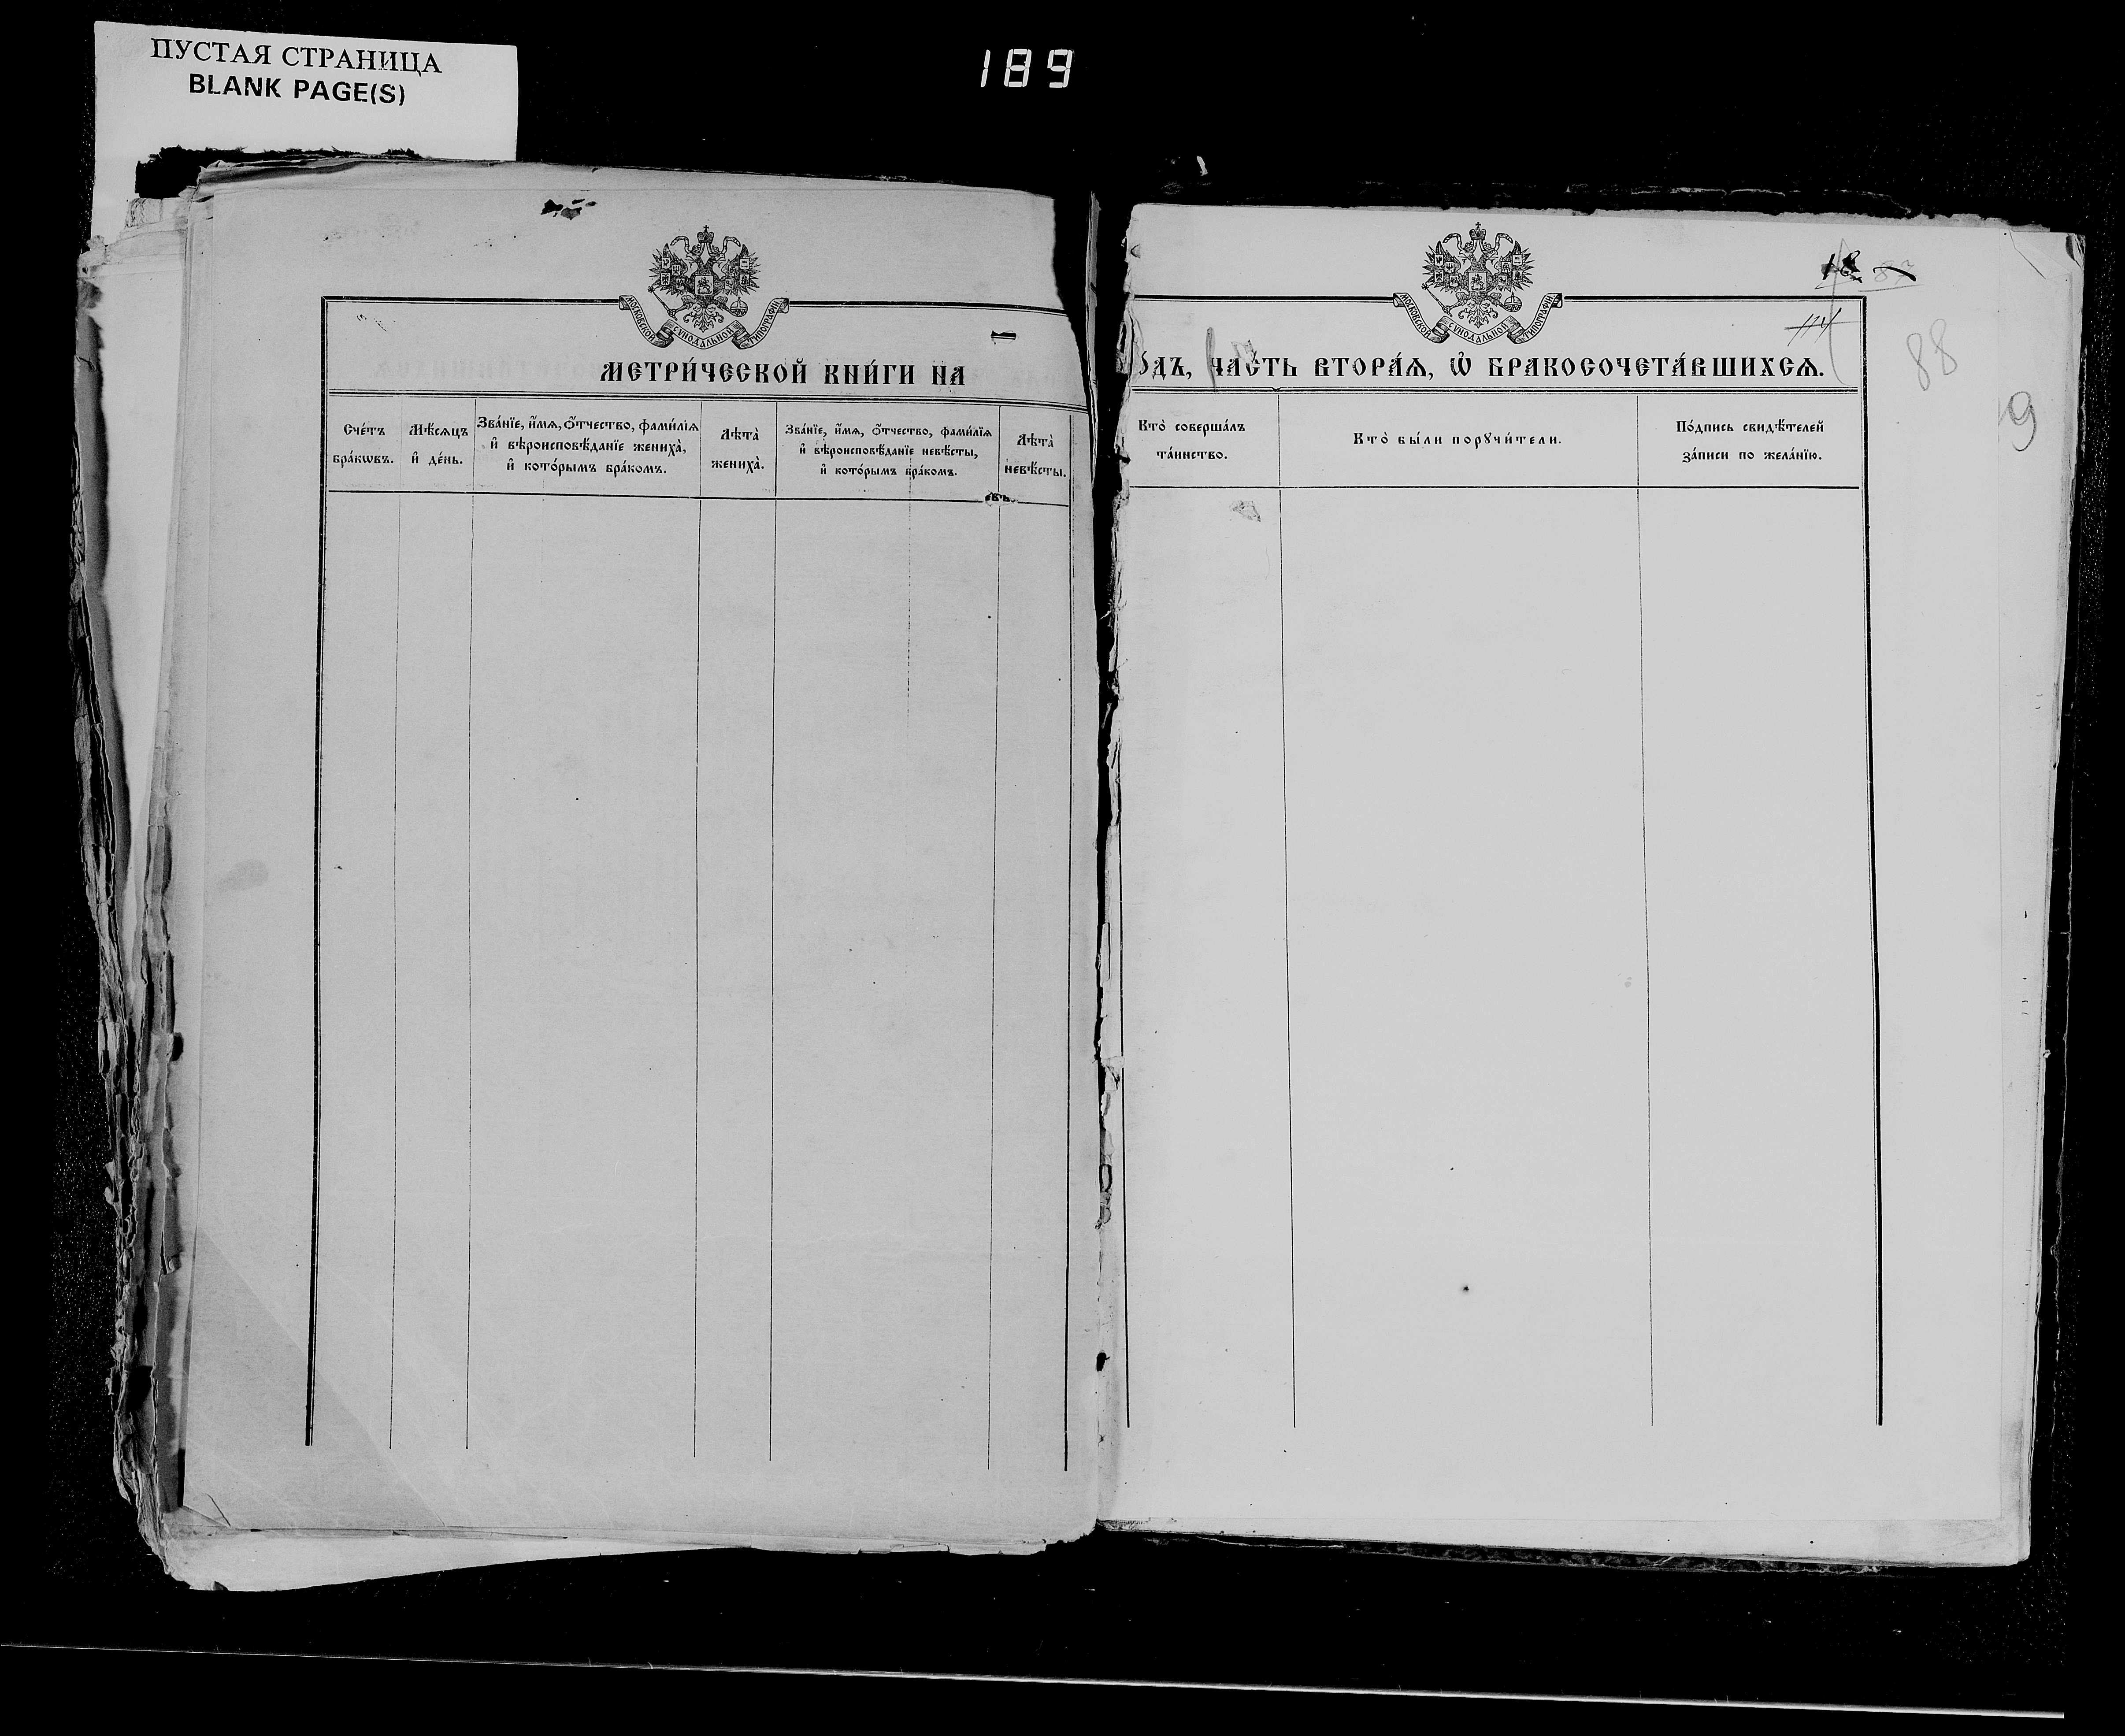 ПУСТАЯ СТРАНИЦА
BLANK PAGE(S)
189
МОСКОВСКОЙ СѴНОДАЛЬНОЙ ТИПОГРАФІИ
МЕТРИ́ЧЕСКОЙ КНИ́ГИ НА
Сче́тъ
бра́кωвъ.
Мѣ́сѧцъ
и҆ де́нь.
Зва́нїе, и҆́мѧ, ѻ҆́тчество, фами́лїѧ
и҆ вѣроисповѣ́данїе жениха̀,
и҆ кото́рымъ бра́комъ.
Лѣта̀
жениха̀.
Зва́нїе, и҆́мѧ, ѻ҆́тчество, фами́лїѧ
и҆ вѣроисповѣ́данїе невѣ́сты,
и҆ кото́рымъ бра́комъ.
Лѣта̀
невѣ́сты.
МОСКОВСКОЙ СѴНОДАЛЬНОЙ ТИПОГРАФІИ
87
114
88
9
О́ДЪ, ЧА́СТЬ ВТОРА́Ѧ, Ѽ БРАКОСОЧЕТА́ВШИХСѦ.
Кто̀ соверша́лъ
та́инство.
Кто̀ бы́ли порꙋчи́тели.
По́дпись свидѣ́телей
за́писи по жела́нїю.